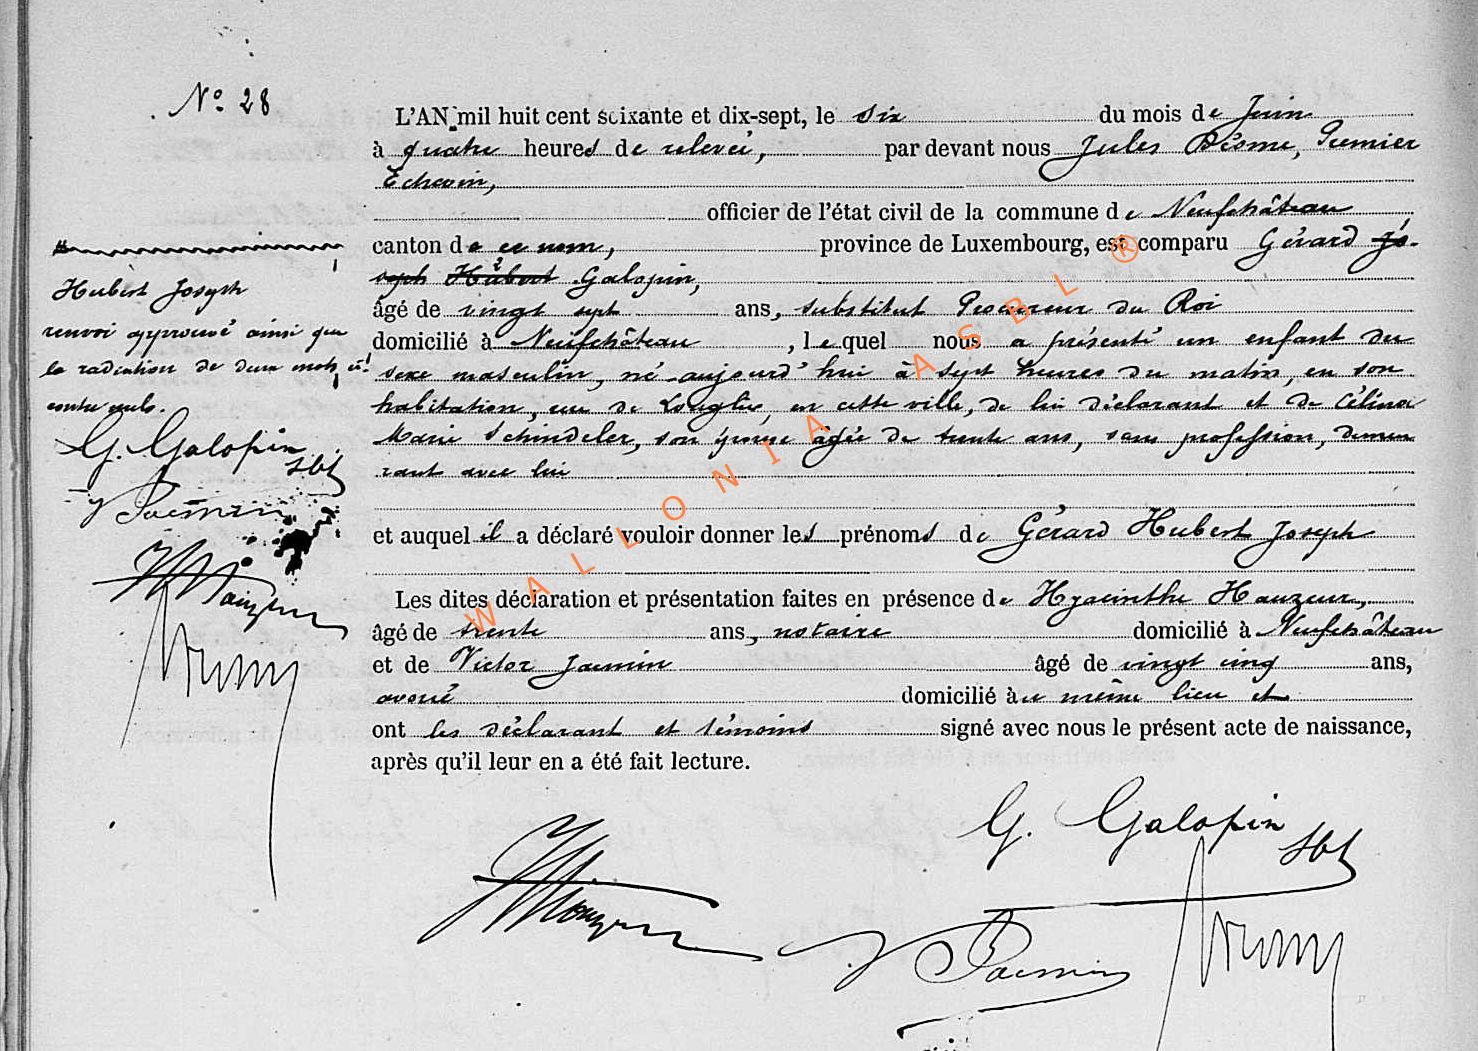 N° 28
L'AN mil huit cent soixante et dix-sept, le six du mois de Juin
à quatre heures de relevée, par devant nous Jules Premier
Echevin,
officier de l'état civil de la commune de Neufchâteau
canton de ce nom, province de Luxembourg, est comparu Gérard Jo-
seph Hubert Galopin,
âgé de vingt sept ans, substitut Procureur du Roi
domicilié à Neufchâteau, lequel nous a présenté un enfant du
sexe masculin, né aujourd'hui à sept heures du matin, en son
habitation, rue de Longlier, en cette ville, de lui déclarant et de Célina
Marie Schindeler, son épouse âgée de trente ans, sans profession, demeu
rant avec lui
et auquel il a déclaré vouloir donner les prénoms de Gérard Hubert Joseph
Les dites déclaration et présentation faites en présence de Hyacinthe Hauzeur,
âgé de trente ans, notaire domicilié à Neufchâteau
et de Victor Jacmin âgé de vingt cinq ans,
avoué domicilié à ce même lieu et
ont les déclarant et témoins signé avec nous le présent acte de naissance,
après qu'il leur en a été fait lecture.
Hubert Joseph
renvoi approuvé ainsi que
la radiation de deux mots ci
contre nuls.
G. Galopin
V Jacmin
H Hauzeur
G. Galopin
H Hauzeur
V Jacmin
WALLONIA ASBL ®